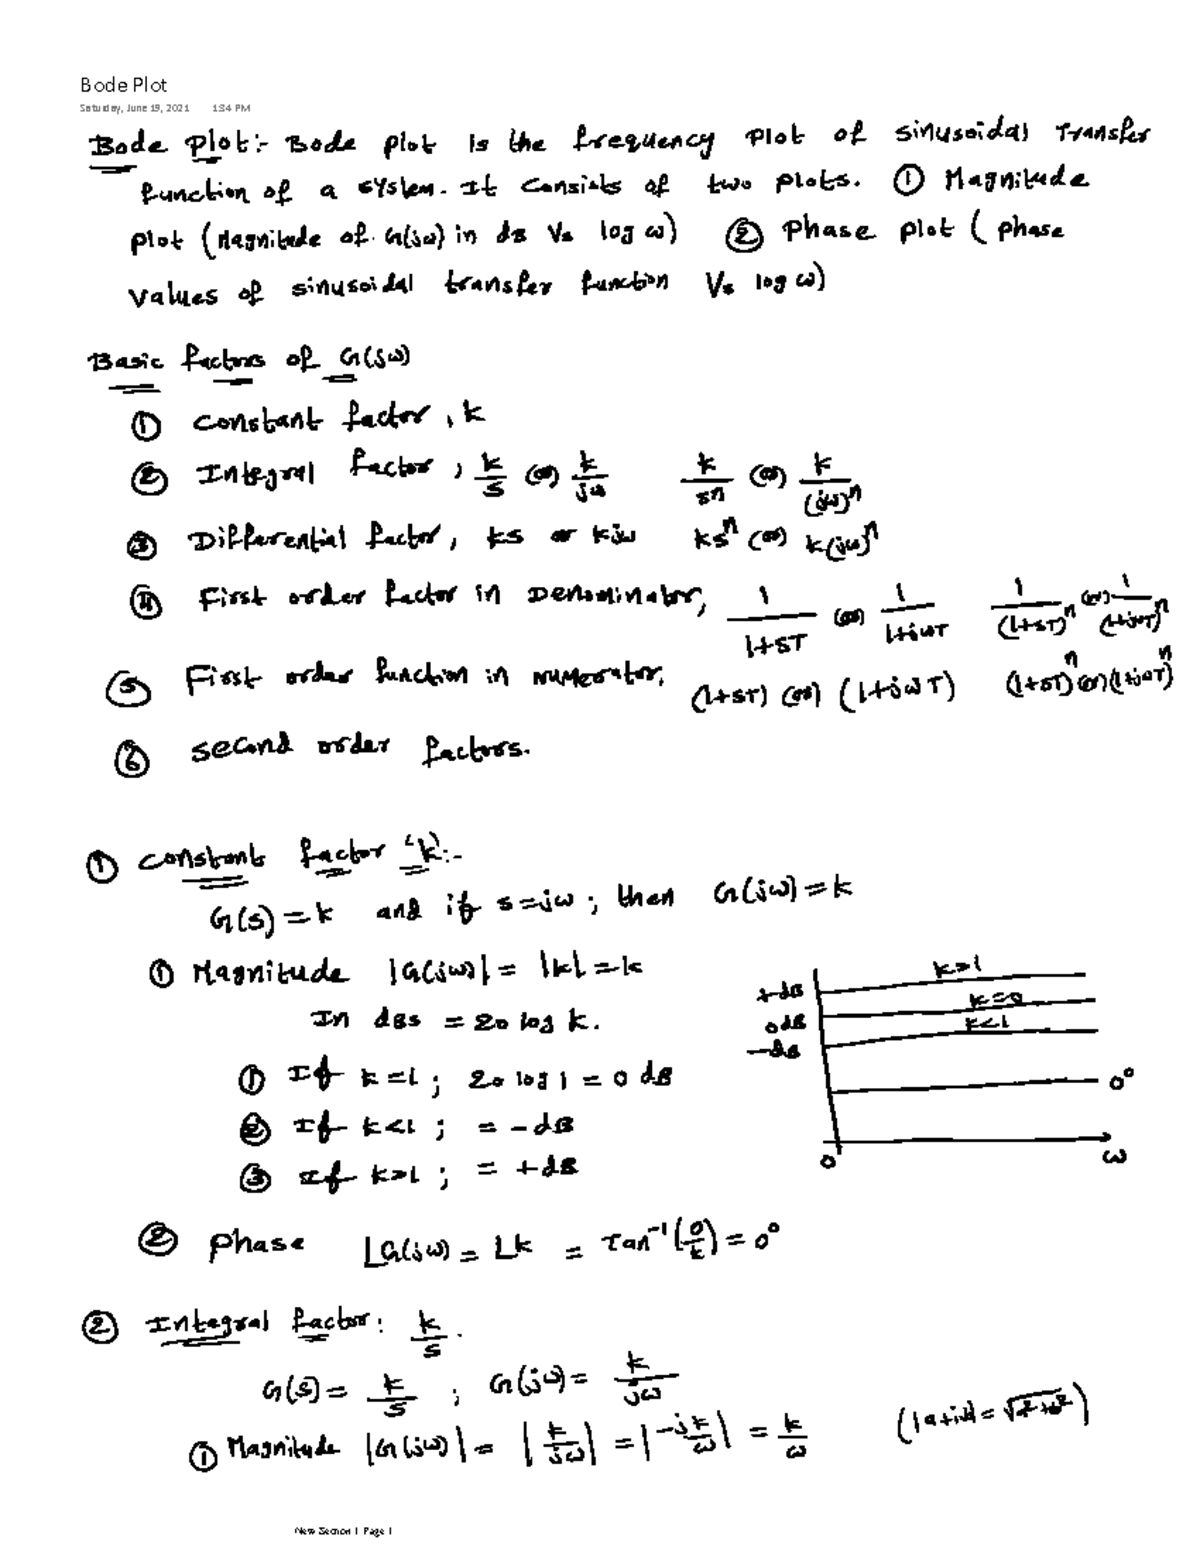 Bode Plot
Saturday, June 19, 2021 1:34 PM
Bode Plot:- Bode plot is the frequency plot of sinusoidal Transfer
function of a system. It consists of two plots. ① Magnitude
plot (Magnitude of G(jω) in dB Vs log ω) ② Phase plot (phase
values of sinusoidal transfer function Vs log ω)
Basic factors of G(jω)
① constant factor, k
② Integral factor, k/s (or) k/jω k/sⁿ (or) k/(jω)ⁿ
③ Differential factor, ks or kjω ksⁿ (or) k(jω)ⁿ
④ First order factor in Denominator, 1/(1+sT) (or) 1/(1+jωT) 1/(1+sT)ⁿ (or) 1/(1+jωT)ⁿ
⑤ First order function in numerator, (1+sT) (or) (1+jωT) (1+sT)ⁿ (or) (1+jωT)ⁿ
⑥ second order factors.
① constant factor 'k':-
G(s) = k and if s=jω ; then G(jω) = k
① Magnitude |G(jω)| = |k| = k
In dBs = 20 log k.
① If k=1 ; 20 log 1 = 0 dB
② If k<1 ; = -dB
③ If k>1 ; = +dB
+dB k>1
0dB k=0
-dB k<1
0°
0 ω
② phase ∠G(jω) = ∠k = Tan⁻¹(0/k) = 0°
② Integral factor: k/s.
G(s) = k/s ; G(jω) = k/jω
① Magnitude |G(jω)| = |k/jω| = |-jk/ω| = k/ω (|a+ib| = √a²+b²)
New Section 1 Page 1